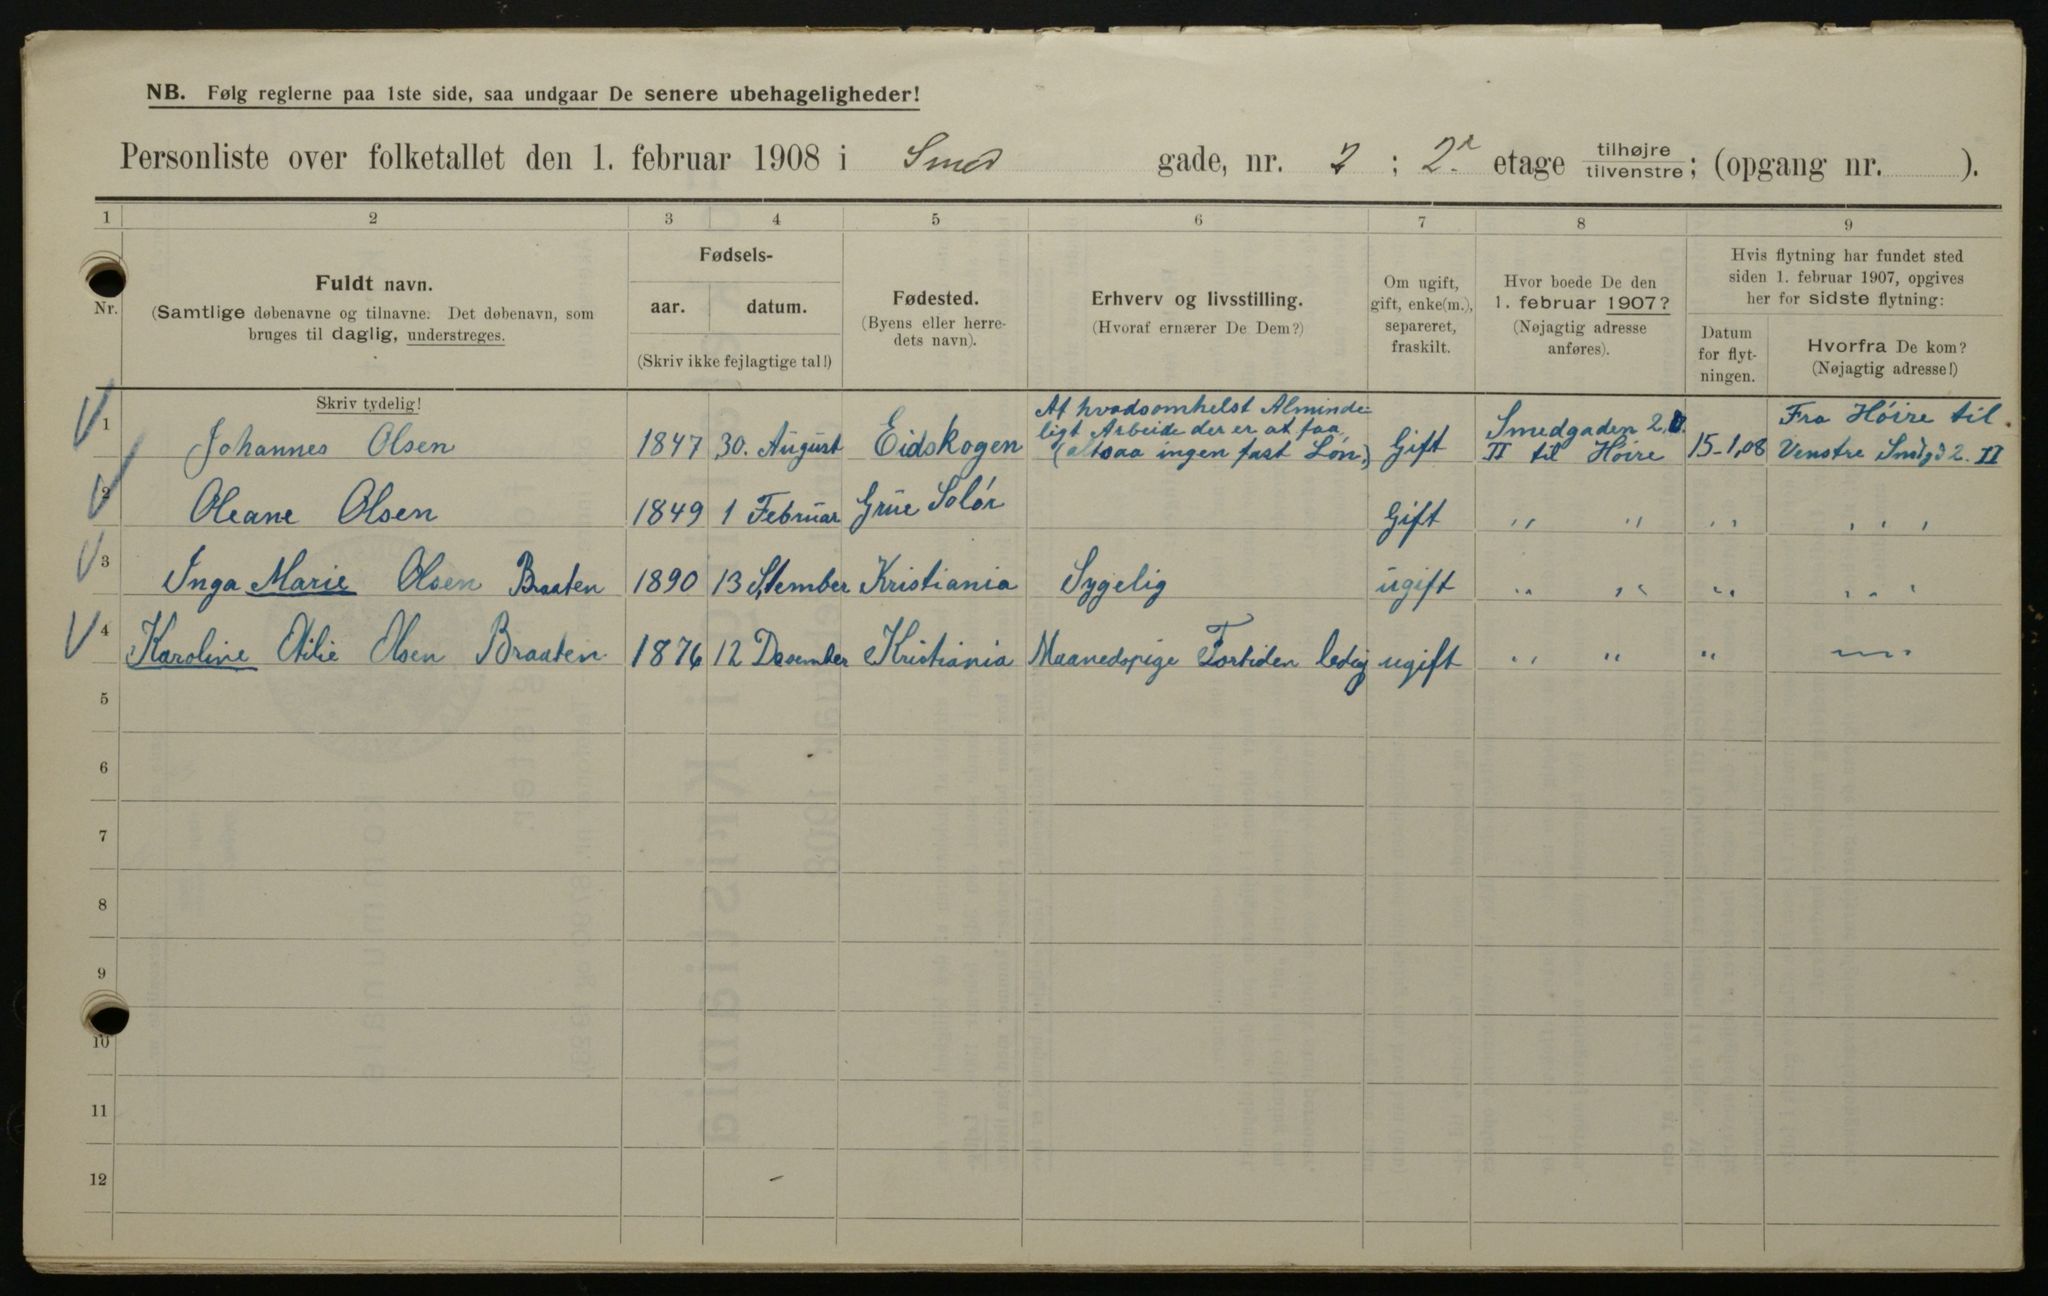 NB. Følg reglerne paa 1ste side, saa undgaar De senere ubehageligheder!
Personliste over folketallet den 1. februar 1908 i Smed gade, nr. 2 ; 2. etage tilhøjre / tilvenstre ; (opgang nr. ).
1 2 3 4 5 6 7 8 9
Nr.
Fuldt navn.
(Samtlige døbenavne og tilnavne. Det døbenavn, som
bruges til daglig, understreges.
Fødsels-
aar. datum.
(Skriv ikke fejlagtige tal!)
Fødested.
(Byens eller herre-
dets navn).
Erhverv og livsstilling.
(Hvoraf ernærer De Dem?)
Om ugift,
gift, enke(m.),
separeret,
fraskilt.
Hvor boede De den
1. februar 1907?
(Nøjagtig adresse
anføres).
Hvis flytning har fundet sted
siden 1. februar 1907, opgives
her for sidste flytning:
Datum
for flyt-
ningen.
Hvorfra De kom?
(Nøjagtig adresse!)
Skriv tydelig!
1 Johannes Olsen 1847 30. August Eidskogen
Af hvadsomhelst Alminde-
ligt Arbeide der er at faa
(altsaa ingen fast Løn)
Gift
Smedgaden 2.
II til Høire
15-1,08
Fra Høire til
Venstre Smdgd 2. II
2 Oleane Olsen 1849 1 Februar Grue Solør Gift " " " " " " "
3 Inga Marie Olsen Braaten 1890 13 Stember Kristiania Sygelig ugift " " " " " "
4 Karoline Otilie Olsen Braaten 1876 12 Desember Kristiania Maanedspige Fortiden ledig ugift " " " "
5
6
7
8
9
10
11
12